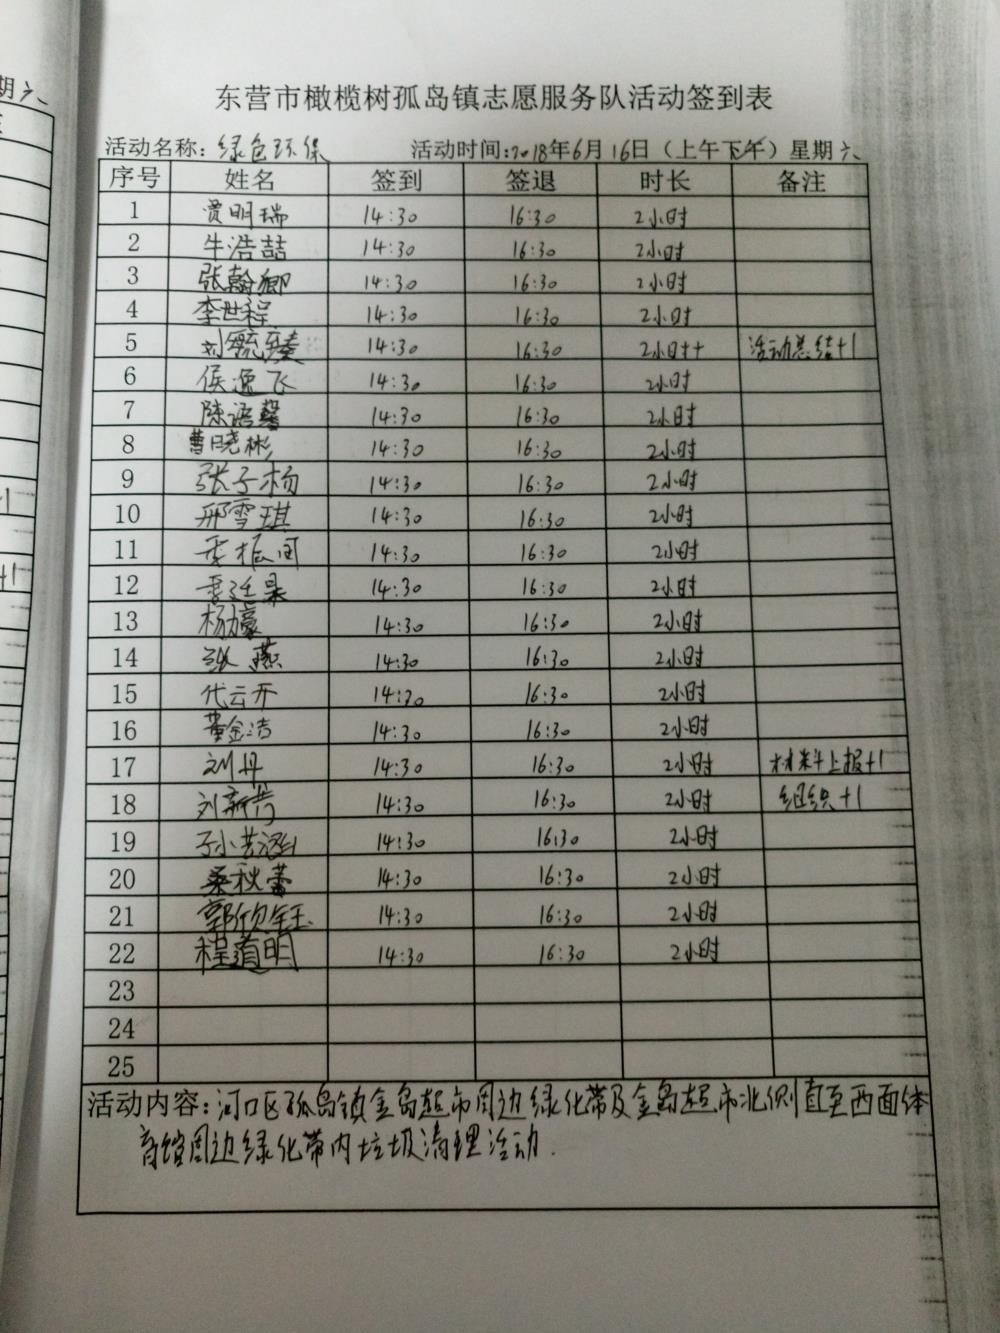 东营市橄榄树孤岛镇志愿服务队活动签到表
活动名称：绿色环保 活动时间：2018年6月16日（上午下午）星期六
序号 姓名 签到 签退 时长 备注
1 贾明瑞 14:30 16:30 2小时
2 牛浩喆 14:30 16:30 2小时
3 张翰卿 14:30 16:30 2小时
4 李世程 14:30 16:30 2小时
5 刘毓 14:30 16:30 2小时+ 活动总结+1
6 侯逸飞 14:30 16:30 2小时
7 陈语馨 14:30 16:30 2小时
8 曹晓彬 14:30 16:30 2小时
9 张子杨 14:30 16:30 2小时
10 邢雪琪 14:30 16:30 2小时
11 14:30 16:30 2小时
12 14:30 16:30 2小时
13 杨濠 14:30 16:30 2小时
14 张燕 14:30 16:30 2小时
15 代云开 14:30 16:30 2小时
16 黄金洁 14:30 16:30 2小时
17 刘丹 14:30 16:30 2小时 材料上报+1
18 刘新芳 14:30 16:30 2小时 组织+1
19 14:30 16:30 2小时
20 桑秋蕾 14:30 16:30 2小时
21 郭欣钰 14:30 16:30 2小时
22 程道明 14:30 16:30 2小时
23
24
25
活动内容：河口区孤岛镇金岛超市周边绿化带及金岛超市北侧直至西面体
育馆周边绿化带内垃圾清理活动.